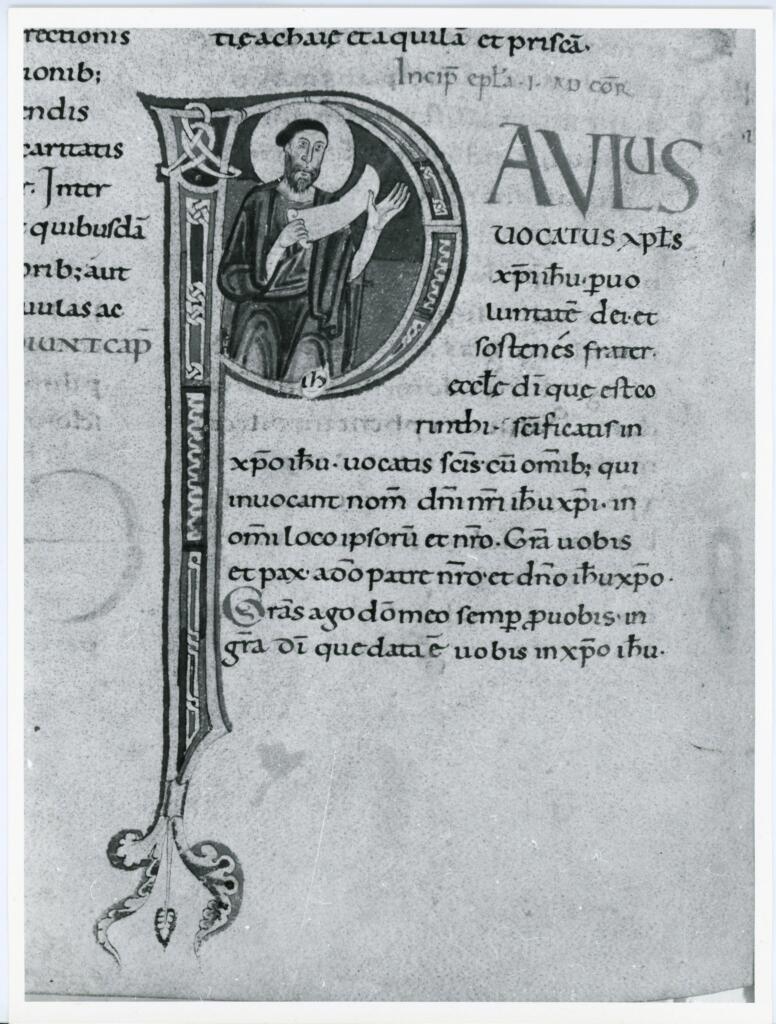 rectionis
ionib;
endis
caritatis
r. Inter
quibusdā
orib; aut
uulas ac
IUNT CAP̄
tię achaię et aquilā et priscā.
Incip̄ epl̄a · I · AD COR̄
PAVLUS
UOCATUS xpl̄s
xp̄i ih̄u · p uo
luntatē dei · et
sostenés frater ·
eccl̄ę dī que est co
rinthi · sc̄ificatis in
xp̄o ih̄u · uocatis sc̄is cū om̄ib; qui
inuocant nom̄ dn̄i nr̄i ih̄u xp̄i · in
om̄i loco ipsorū et nr̄o · Gr̄a uobis
et pax · a dō patre nr̄o et dn̄o ih̄u xp̄o ·
Gr̄as ago dō meo semp̄ p uobis · in
gr̄a dī que data ē uobis in xp̄o ih̄u ·